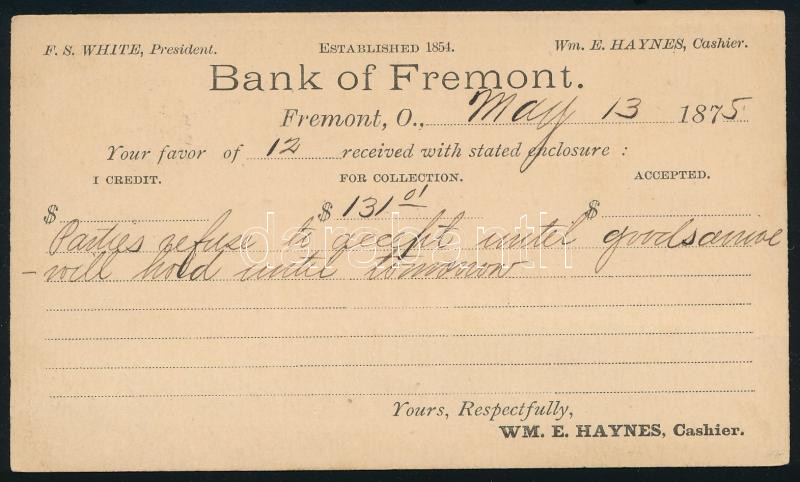 F. S. WHITE, President. ESTABLISHED 1854. Wm. E. HAYNES, Cashier.
Bank of Fremont.
Fremont, O., May 13 1875
Your favor of 12 received with stated enclosure :
I CREDIT. FOR COLLECTION. ACCEPTED.
$ $ 131 01 $
Parties refuse to accept until goods arrive
darabanth
– will hold until tomorrow
Yours, Respectfully,
WM. E. HAYNES, Cashier.